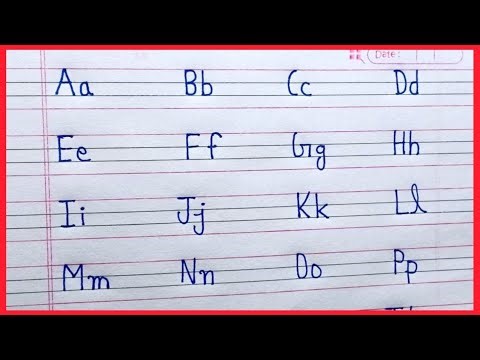 Date:
Aa Bb Cc Dd
Ee Ff Gg Hh
Ii Jj Kk Ll
Mm Nn Oo Pp